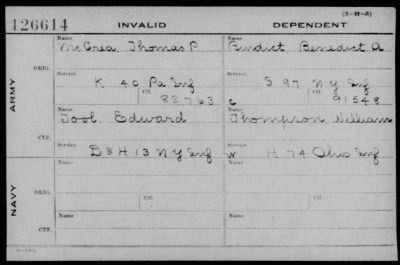 (3-H-5)
126614 INVALID DEPENDENT
Name Name
McCrea, Thomas P Benedict A
ORIG.
Service Service
K 40 Pa Inf S 97 N Y Inf
Ctf. Ctf.
82763 C 91548
ARMY
Name Name
Tool Edward Thompson, William
CTF.
Service Service
D & H 13 N Y Inf W H 74 Ohio Inf
Name Name
NAVY
ORIG.
Service Service
Ctf. Ctf.
Name Name
CTF.